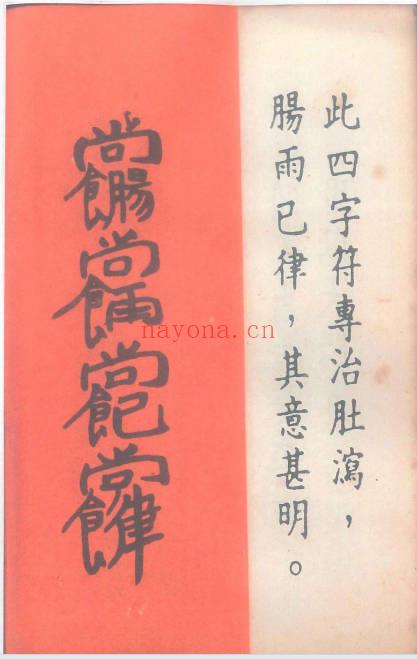 此四字符專治肚瀉，
腸雨已律，其意甚明。
nayona.cn